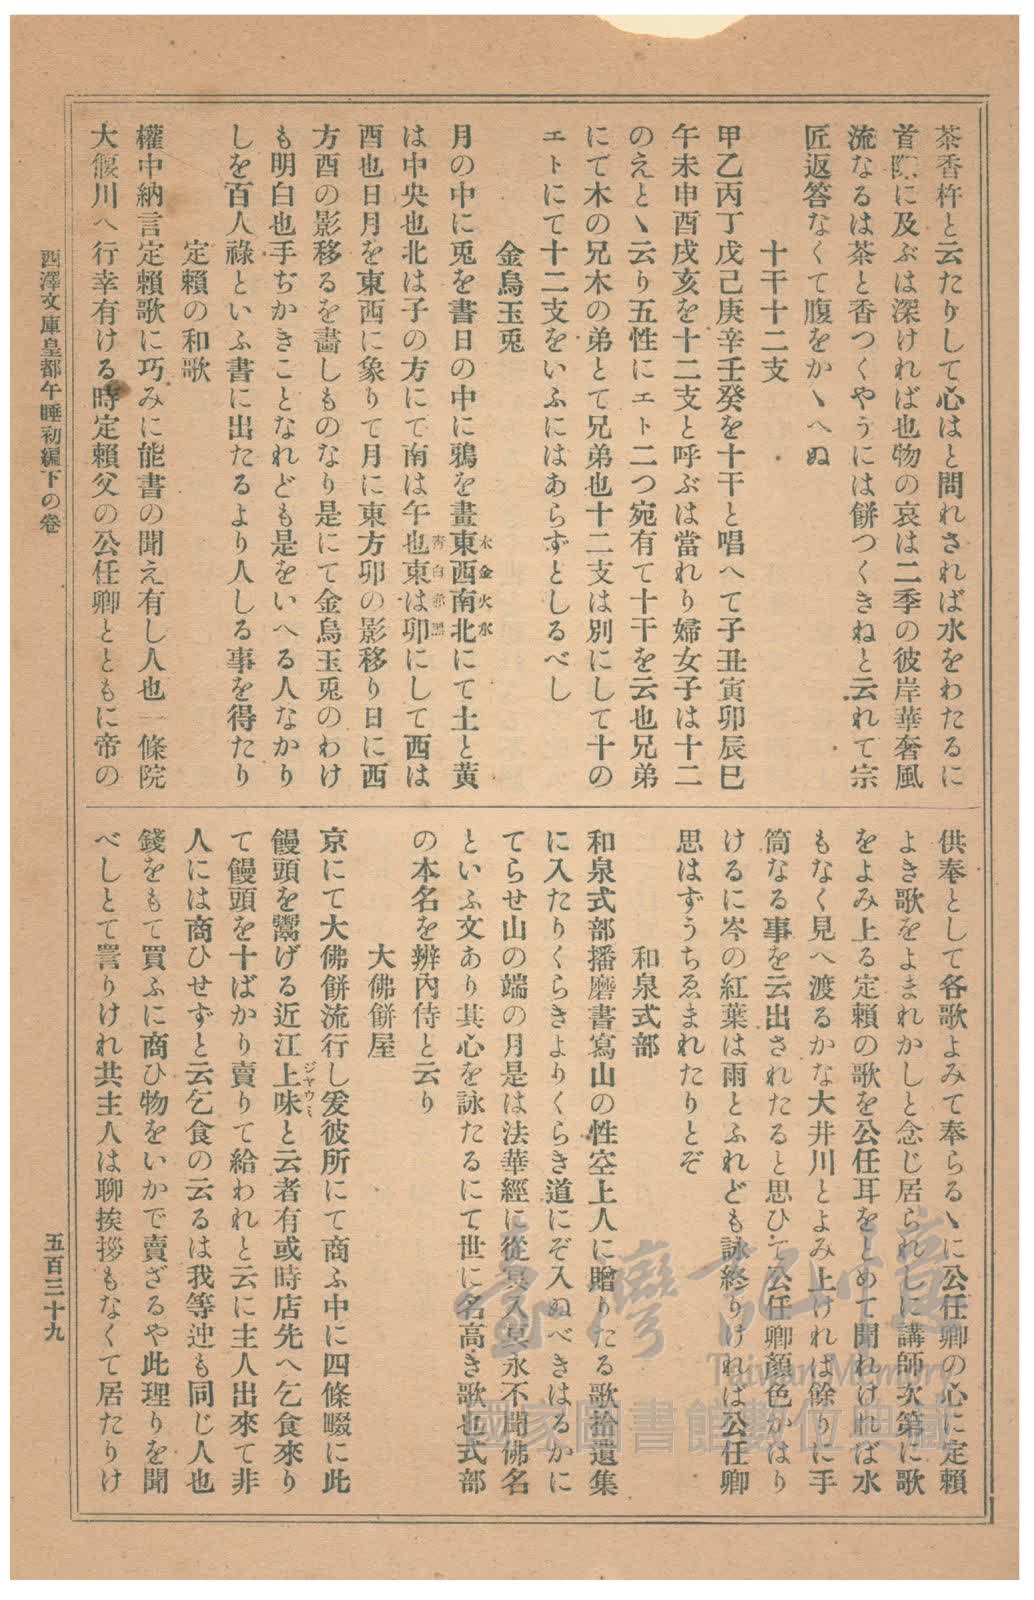 茶香杵と云たりして心はと問れされば水をわたるに
首に及ぶは深ければ也物の哀は二季の彼岸華奢風
流なるは茶と香つくやうには餅つくきねと云れて宗
匠返答なくて腹をかゝへぬ
十干十二支
甲乙丙丁戊己庚辛壬癸を十干と唱へて子丑寅卯辰巳
午未申酉戌亥を十二支と呼ぶは當れり婦女子は十二
のえとゝ云り五性にエト二つ宛有て十干を云也兄弟
にて木の兄木の弟とて兄弟也十二支は別にして十の
エトにて十二支をいふにはあらずとしるべし
金烏玉兎
月の中に兎を書日の中に鴉を畫東西南北にて土と黄
木金火水
は中央也北は子の方にて南は午也東は卯にして西は
青白赤黑
酉也日月を東西に象りて月に東方卯の影移り日に西
方酉の影移るを畵しものなり是にて金烏玉兎のわけ
も明白也手ぢかきことなれども是をいへる人なかり
しを百人祿といふ書に出たるより人しる事を得たり
定賴の和歌
權中納言定賴歌に巧みに能書の聞え有し人也一條院
大偃川へ行幸有ける時定賴父の公任卿とともに帝の
供奉として各歌よみて奉らるゝに公任卿の心に定賴
よき歌をよまれかしと念じ居られしに講師次第に歌
をよみ上る定賴の歌を公任耳をとめて聞れければ水
もなく見へ渡るかな大井川とよみ上ければ餘りに手
筒なる事を云出されたると思ひて公任卿顏色かはり
けるに岑の紅葉は雨とふれども詠終りければ公任卿
思はずうちゑまれたりとぞ
和泉式部
和泉式部播磨書寫山の性空上人に贈りたる歌拾遺集
に入たりくらきよりくらき道にぞ入ぬべきはるかに
てらせ山の端の月是は法華經に從冥入冥永不聞佛名
といふ文あり其心を詠たるにて世に名高き歌也式部
の本名を辨內侍と云り
大佛餅屋
京にて大佛餅流行し爰彼所にて商ふ中に四條畷に此
饅頭を鬻げる近江上味と云者有或時店先へ乞食來り
ジヤウミ
て饅頭を十ばかり賣りて給われと云に主人出來て非
人には商ひせずと云乞食の云るは我等迚も同じ人也
錢をもて買ふに商ひ物をいかで賣ざるや此理りを聞
べしとて詈りけれ共主人は聊挨拶もなくて居たりけ
西澤文庫皇都午睡初編下の卷
五百三十九
臺灣記憶
Taiwan Memory
國家圖書館數位典藏